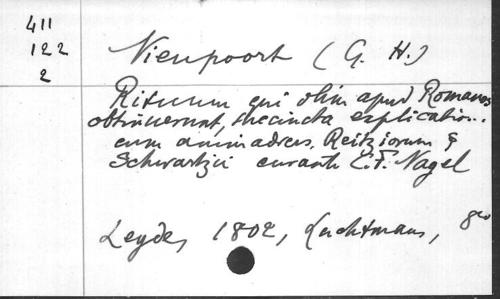 411
122
2
Nieupoort (G. H.)
Rituum qui olim apud Romanos
obtinuerunt, succincta explicatio...
cum animadvers. Reitziorum &
Schwartzii curante C. F. Nagel
Leyde, 1802, Luchtmans, 8vo